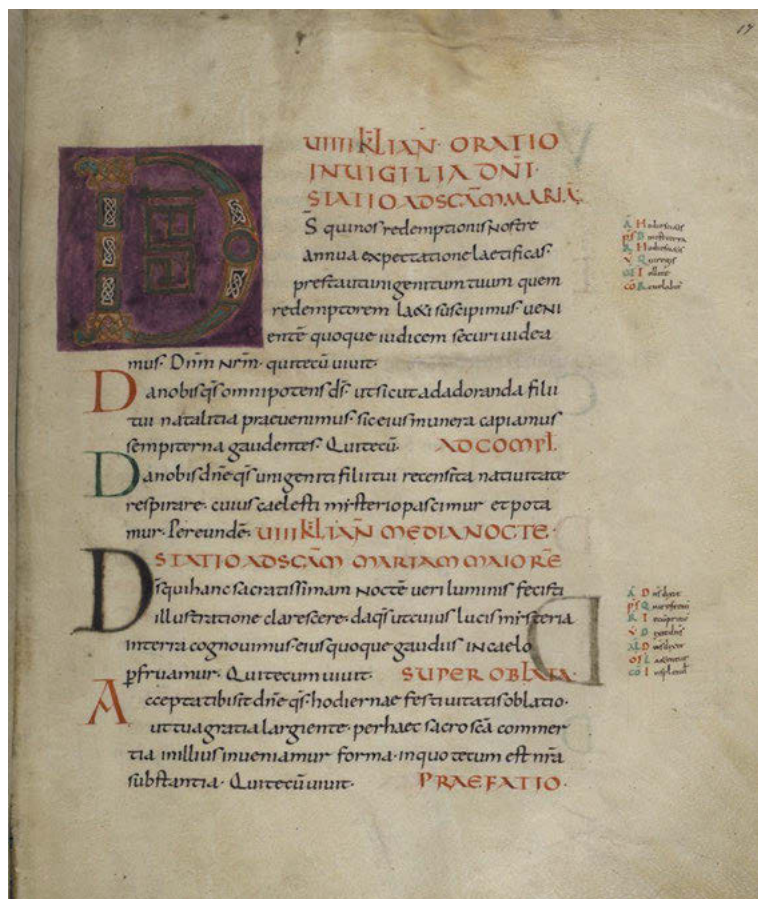 17
VIIII KL IAN̄· ORATIO
IN UIGILIA DN̄I·
STATIO AD SC̄AM MARIĀ
D S̄ qui nos redemptionis nostre
annua expectatione laetificas·
presta ut unigenitum tuum quem
redemptorem laeti suscipimus ueni
entē quoque iudicem securi uidea
mus· Dn̄m Nr̄m· qui tecū uiuit·
Da nobis qs̄ omnipotens ds̄· ut sicut ad adoranda filii
tui natalitia praeuenimus· sic eius munera capiamus
sempiterna gaudentes· Qui tecū· AD COMPL̄·
Da nobis dn̄e qs̄ unigeniti filii tui recensita natiuitate
respirare· cuius caelesti mysterio pascimur et pota
mur· Per eundē· VIIII KL IAN̄ MEDIA NOCTE·
STATIO AD SC̄AM MARIAM MAIORĒ
Ds̄ qui hanc sacratissimam noctē ueri luminis fecisti
illustratione clarescere· da qs̄ ut cuius lucis mysteria
in terra cognouimus· eius quoque gaudiis in caelo
ꝑfruamur· Qui tecum uiuit· SUPER OBLATA·
Accepta tibi sit dn̄e qs̄ hodiernae festiuitatis oblatio·
ut tua gratia largiente· per haec sacro sc̄a commer
tia in illius inueniamur forma· in quo tecum est nr̄a
substantia· Qui tecū uiuit· PRAEFATIO·